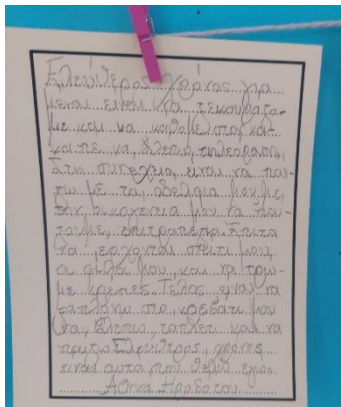 Ελεύθερος χρόνος για
μένα είναι να τεκουράζο-
με και να καθομε στον κα-
ναπε να βλεπω τηλεοραση.
Στη συνεχεια είναι να παι-
ζω με τα αδελφια μου με
την οικογενεια μου να παι-
ζουμε επιτραπεζια. Επιτα
να ερχονται σπίτι μου
οι φιλοι μου και να τρω-
με κρεπες. Τελος ειναι να
ξαπλωνω στο κρεβατι μου
να βλεπω ταπλετ και να
Ελευθερος χρονος
ειναι αυτα που θελω εγω.
Αθηνα